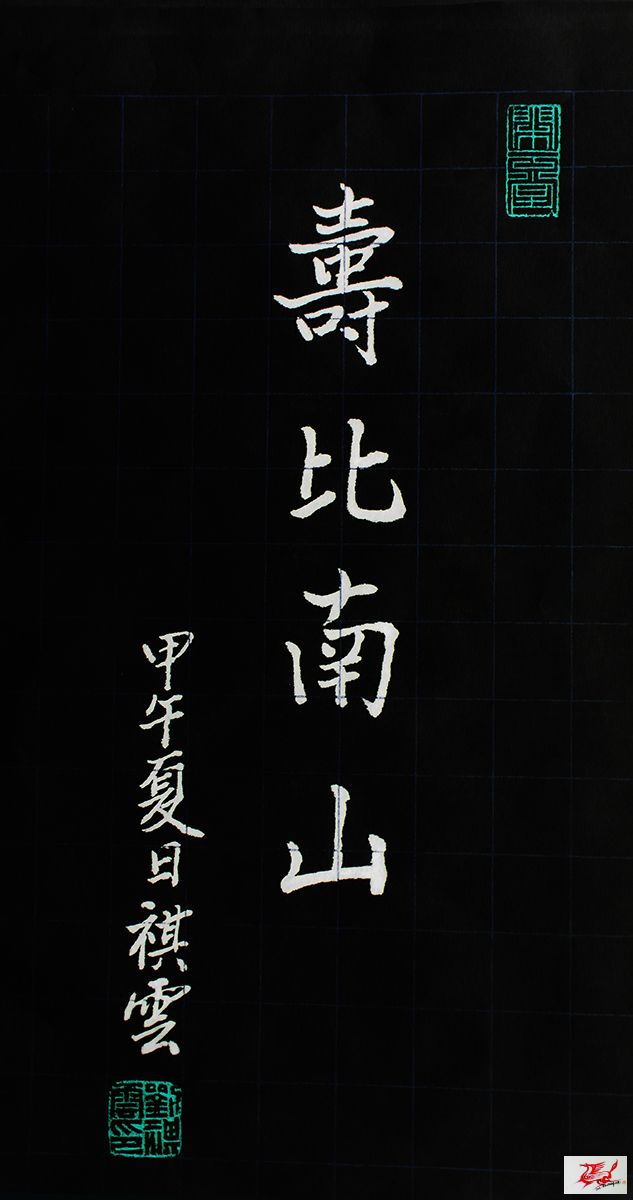 壽比南山
甲午夏日祺雲